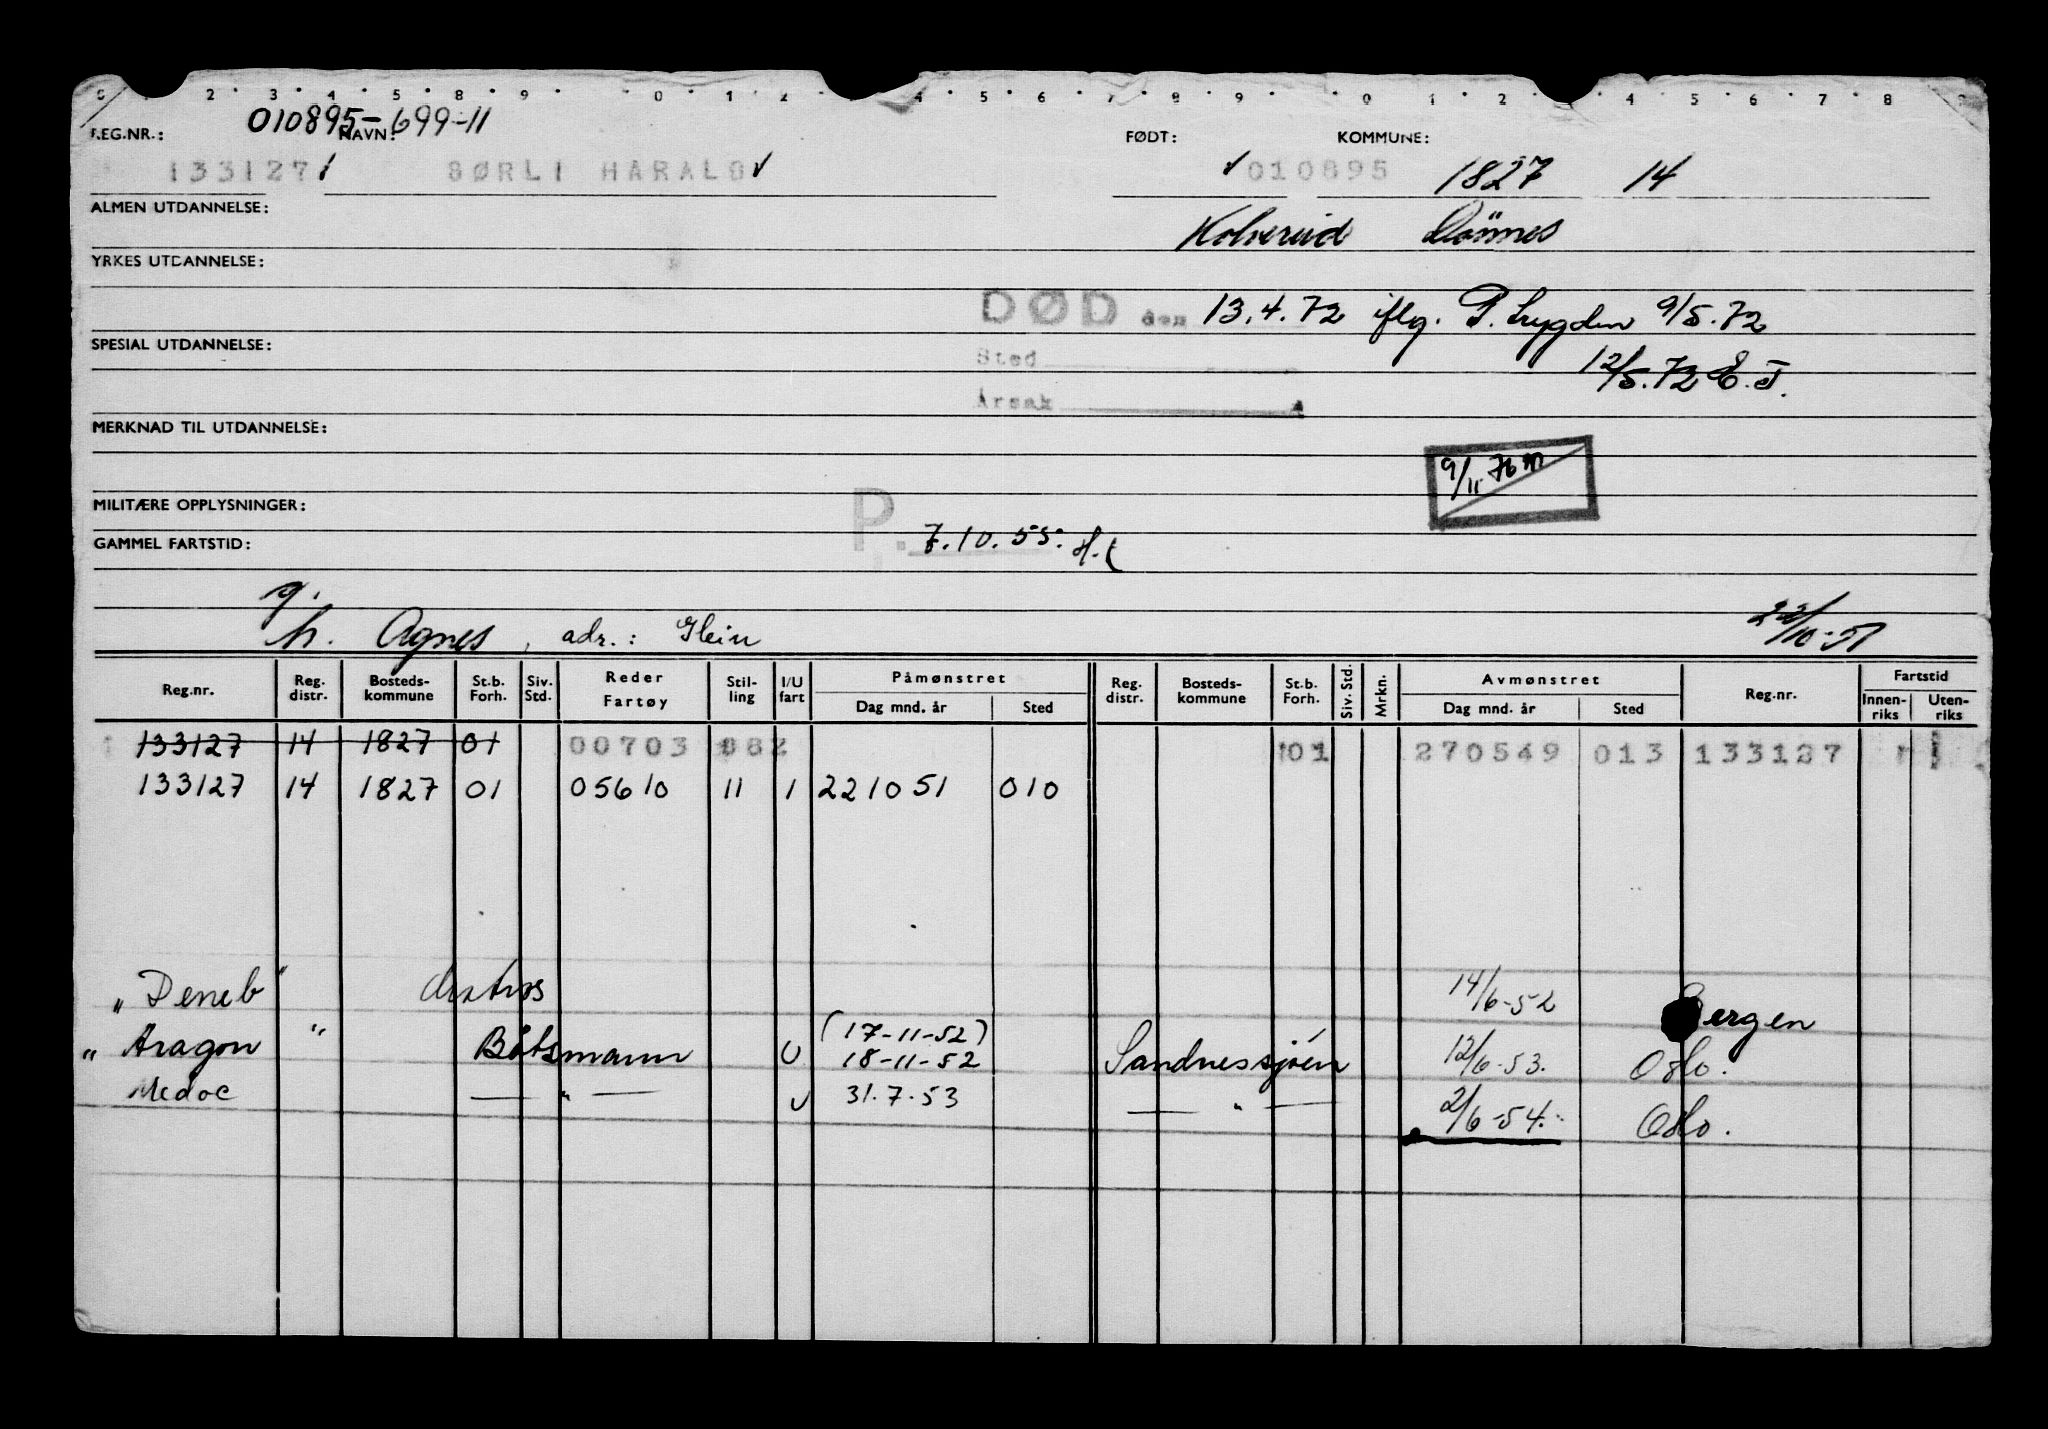 0 1 2 3 4 5 8 9 0 1 2 4 5 6 7 8 9 0 1 2 4 5 6 7 8 9
010895-699-11
REG.NR.: NAVN: FØDT: KOMMUNE:
133127 SØRLI HARALD 010895 1827 14
ALMEN UTDANNELSE: Kolvereid Dönnes
YRKES UTDANNELSE:
DØD den 13.4.72 iflg. P. Trygden 9/5.72
SPESIAL UTDANNELSE: Sted 12/5.72
Årsak
MERKNAD TIL UTDANNELSE:
9/11 76 m
MILITÆRE OPPLYSNINGER:
P. 7.10.55.
GAMMEL FARTSTID:
g.
h. Agnes, adr.: Glein 22/10-51
Reg.nr. Reg. distr. Bosteds-kommune St.b. Forh. Siv. Std. Reder Fartøy Stil-ling I/U fart Påmønstret Dag mnd. år Sted Reg. distr. Bosteds-kommune St.b. Forh. Siv. Std. Mrkn. Avmønstret Dag mnd. år Sted Reg.nr. Fartstid Innen-riks Uten-riks
133127 14 1827 01 00703 082 01 270549 013 133127
133127 14 1827 01 05610 11 1 221051 010
"Deneb" 14/6-52 Bergen
(17-11-52)
" Aragon " Båtsmann U 18-11-52 Sandnessjøen 12/6-53. Oslo.
Medoc — " — U 31.7.53 — " — 2/6-54. Oslo.